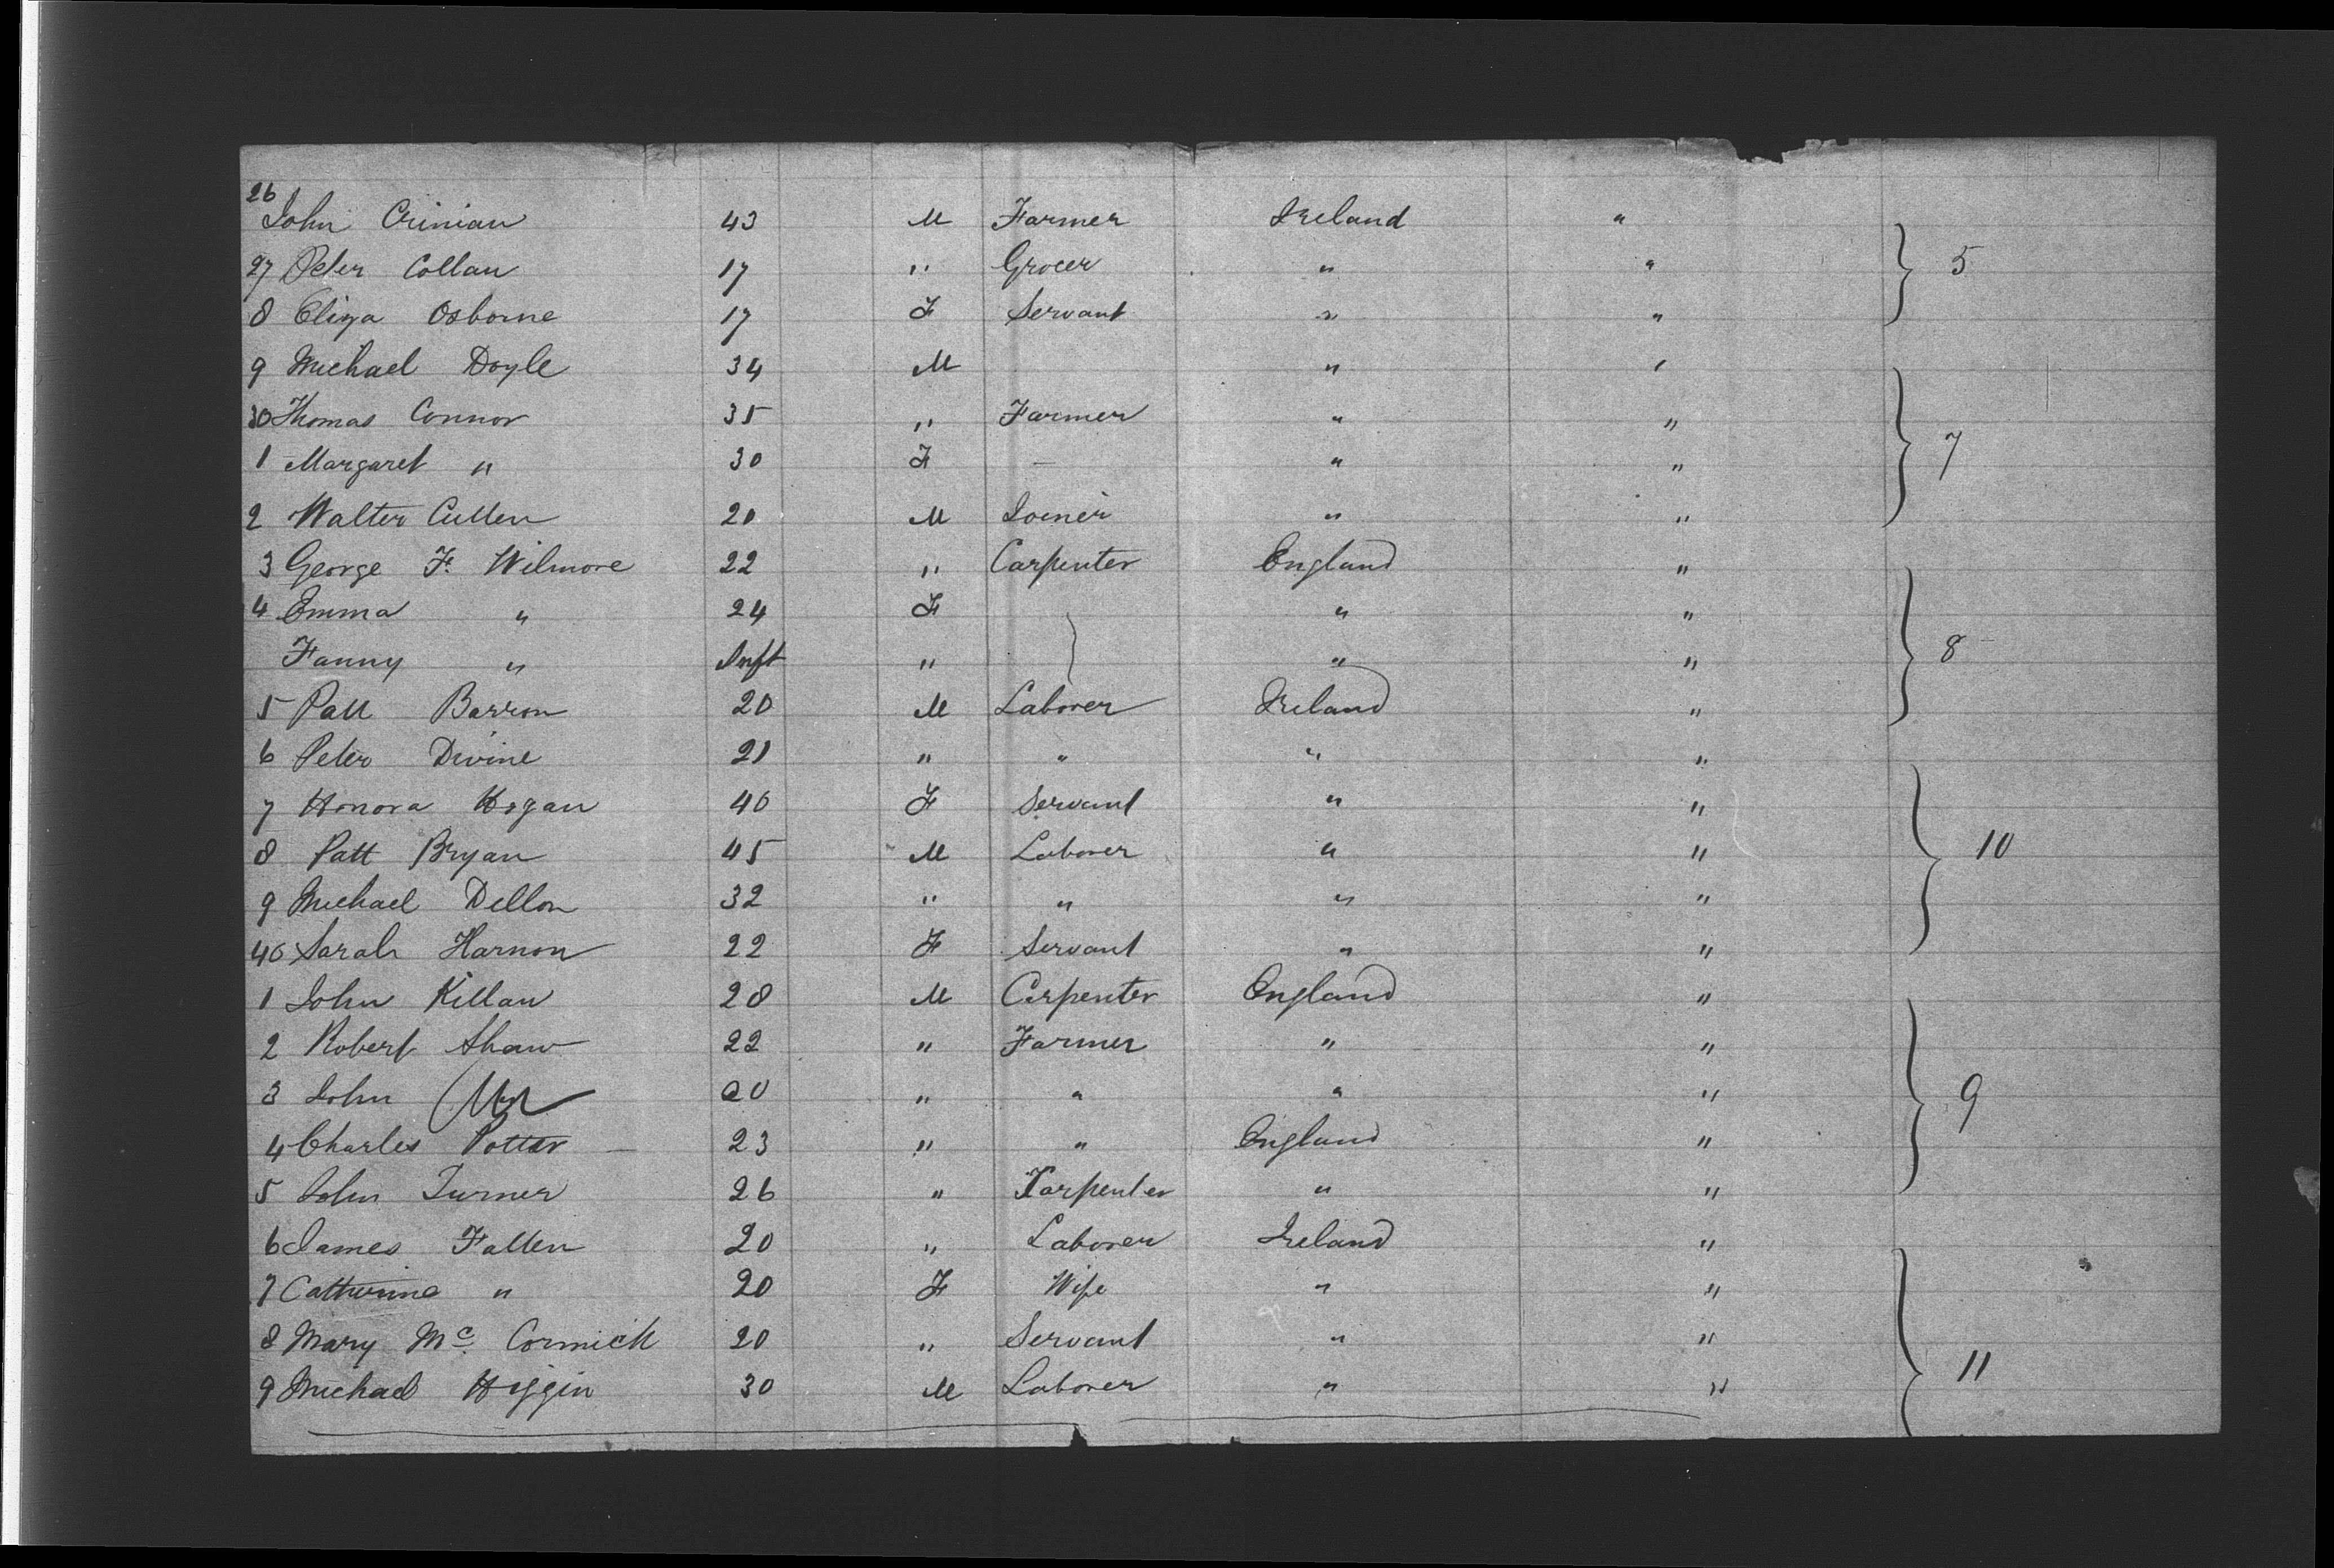 26 John Crinian 43 M Farmer Ireland "
27 Peter Collan 17 " Grocer " " 5
8 Eliza Osborne 17 F Servant " "
9 Michael Doyle 34 M " "
30 Thomas Connor 35 " Farmer " "
1 Margaret " 30 F — " " 7
2 Walter Cullen 20 M Joiner " "
3 George F. Wilmore 22 " Carpenter England "
4 Emma " 24 F " "
Fanny " Inft " " " 8
5 Patt Barron 20 M Laborer Ireland "
6 Peter Divine 21 " " " "
7 Honora Hogan 40 F Servant " "
8 Patt Bryan 45 M Laborer " " 10
9 Michael Dellon 32 " " " "
40 Sarah Harnon 22 F Servant " "
1 John Killan 28 M Carpenter England "
2 Robert Shaw 22 " Farmer " "
3 John 20 " " " " 9
4 Charles Potter — 23 " " England "
5 John Turner 26 " Karpenter " "
6 James Fallen 20 " Laborer Ireland "
7 Catherine " 20 F Wife " "
8 Mary Mc Cormick 20 " Servant " "
9 Michael Higgin 30 M Laborer " " 11